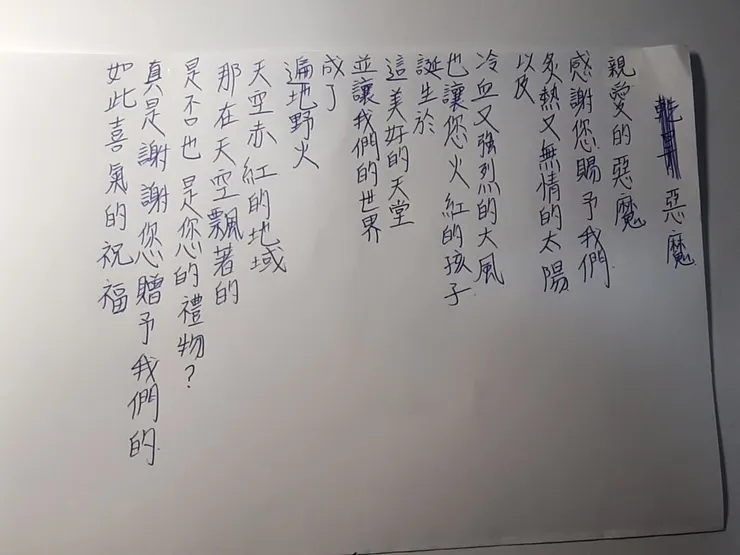 惡魔
親愛的惡魔
感謝您賜予我們
炙熱又無情的太陽
以及
冷血又強烈的大風
也讓您火紅的孩子
誕生於
這美好的天堂
並讓我們的世界
成了
遍地野火
天空赤紅的地域
那在天空飄著的
是否也是您的禮物?
真是謝謝您贈予我們的
如此喜氣的祝福